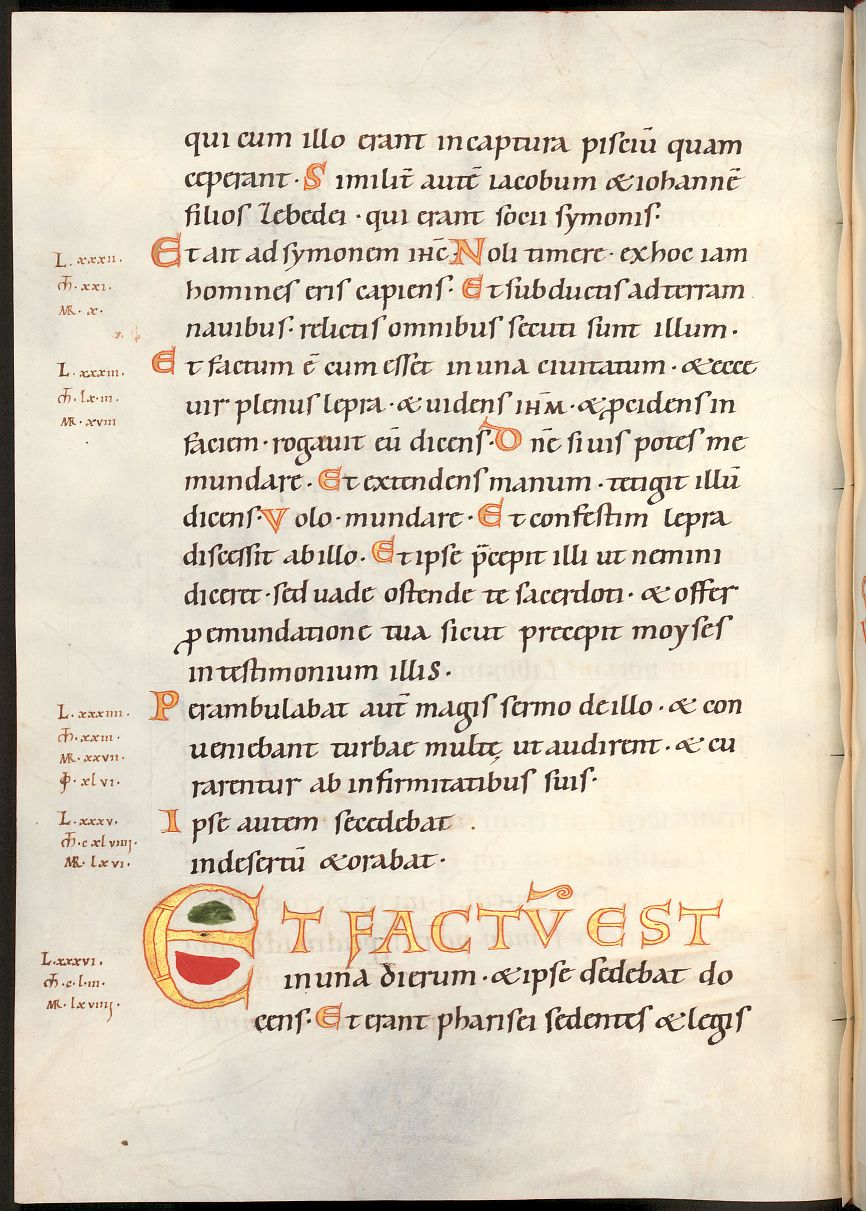 qui cum illo erant in captura pisciū quam
ceperant · Similit̄ autē iacobum & iohannē
filios Zebedei · qui erant socii symonis ·
L. xxxii.
m̄. xxi.
MR. x.
Et ait ad symonem ihc̄ · Noli timere · ex hoc iam
homines eris capiens · Et subductis ad terram
nauibus · relictis omnibus secuti sunt illum ·
L. xxxiii.
m̄. lxiii.
MR. xviii
Et factum ē cum esset in una ciuitatum · & ecce
uir plenus lepra · & uidens ihm̄ · & pcidens in
faciem · rogauit eū dicens · Dn̄e si uis potes me
mundare · Et extendens manum · tetigit illū
dicens · Volo · mundare · Et confestim lepra
discessit ab illo · Et ipse p̄cepit illi ut nemini
diceret · sed uade ostende te sacerdoti · & offer
ꝓ emundatione tua sicut precepit moyses
in testimonium illis ·
L. xxxiiii.
m̄. xxiii.
MR. xxvii.
φ. xlvi.
Perambulabat aut̄ magis sermo de illo · & con
ueniebant turbae multę ut audirent · & cu
rarentur ab infirmitatibus suis ·
L. xxxv.
m̄. cxlviiii.
MR. lxvi.
Ipse autem secedebat
in desertū & orabat ·
ET FACTV̄ EST
L. xxxvi.
m̄. c. l. iii.
MR. lxviiii.
in una dierum · & ipse sedebat do
cens · Et erant pharisei sedentes & legis